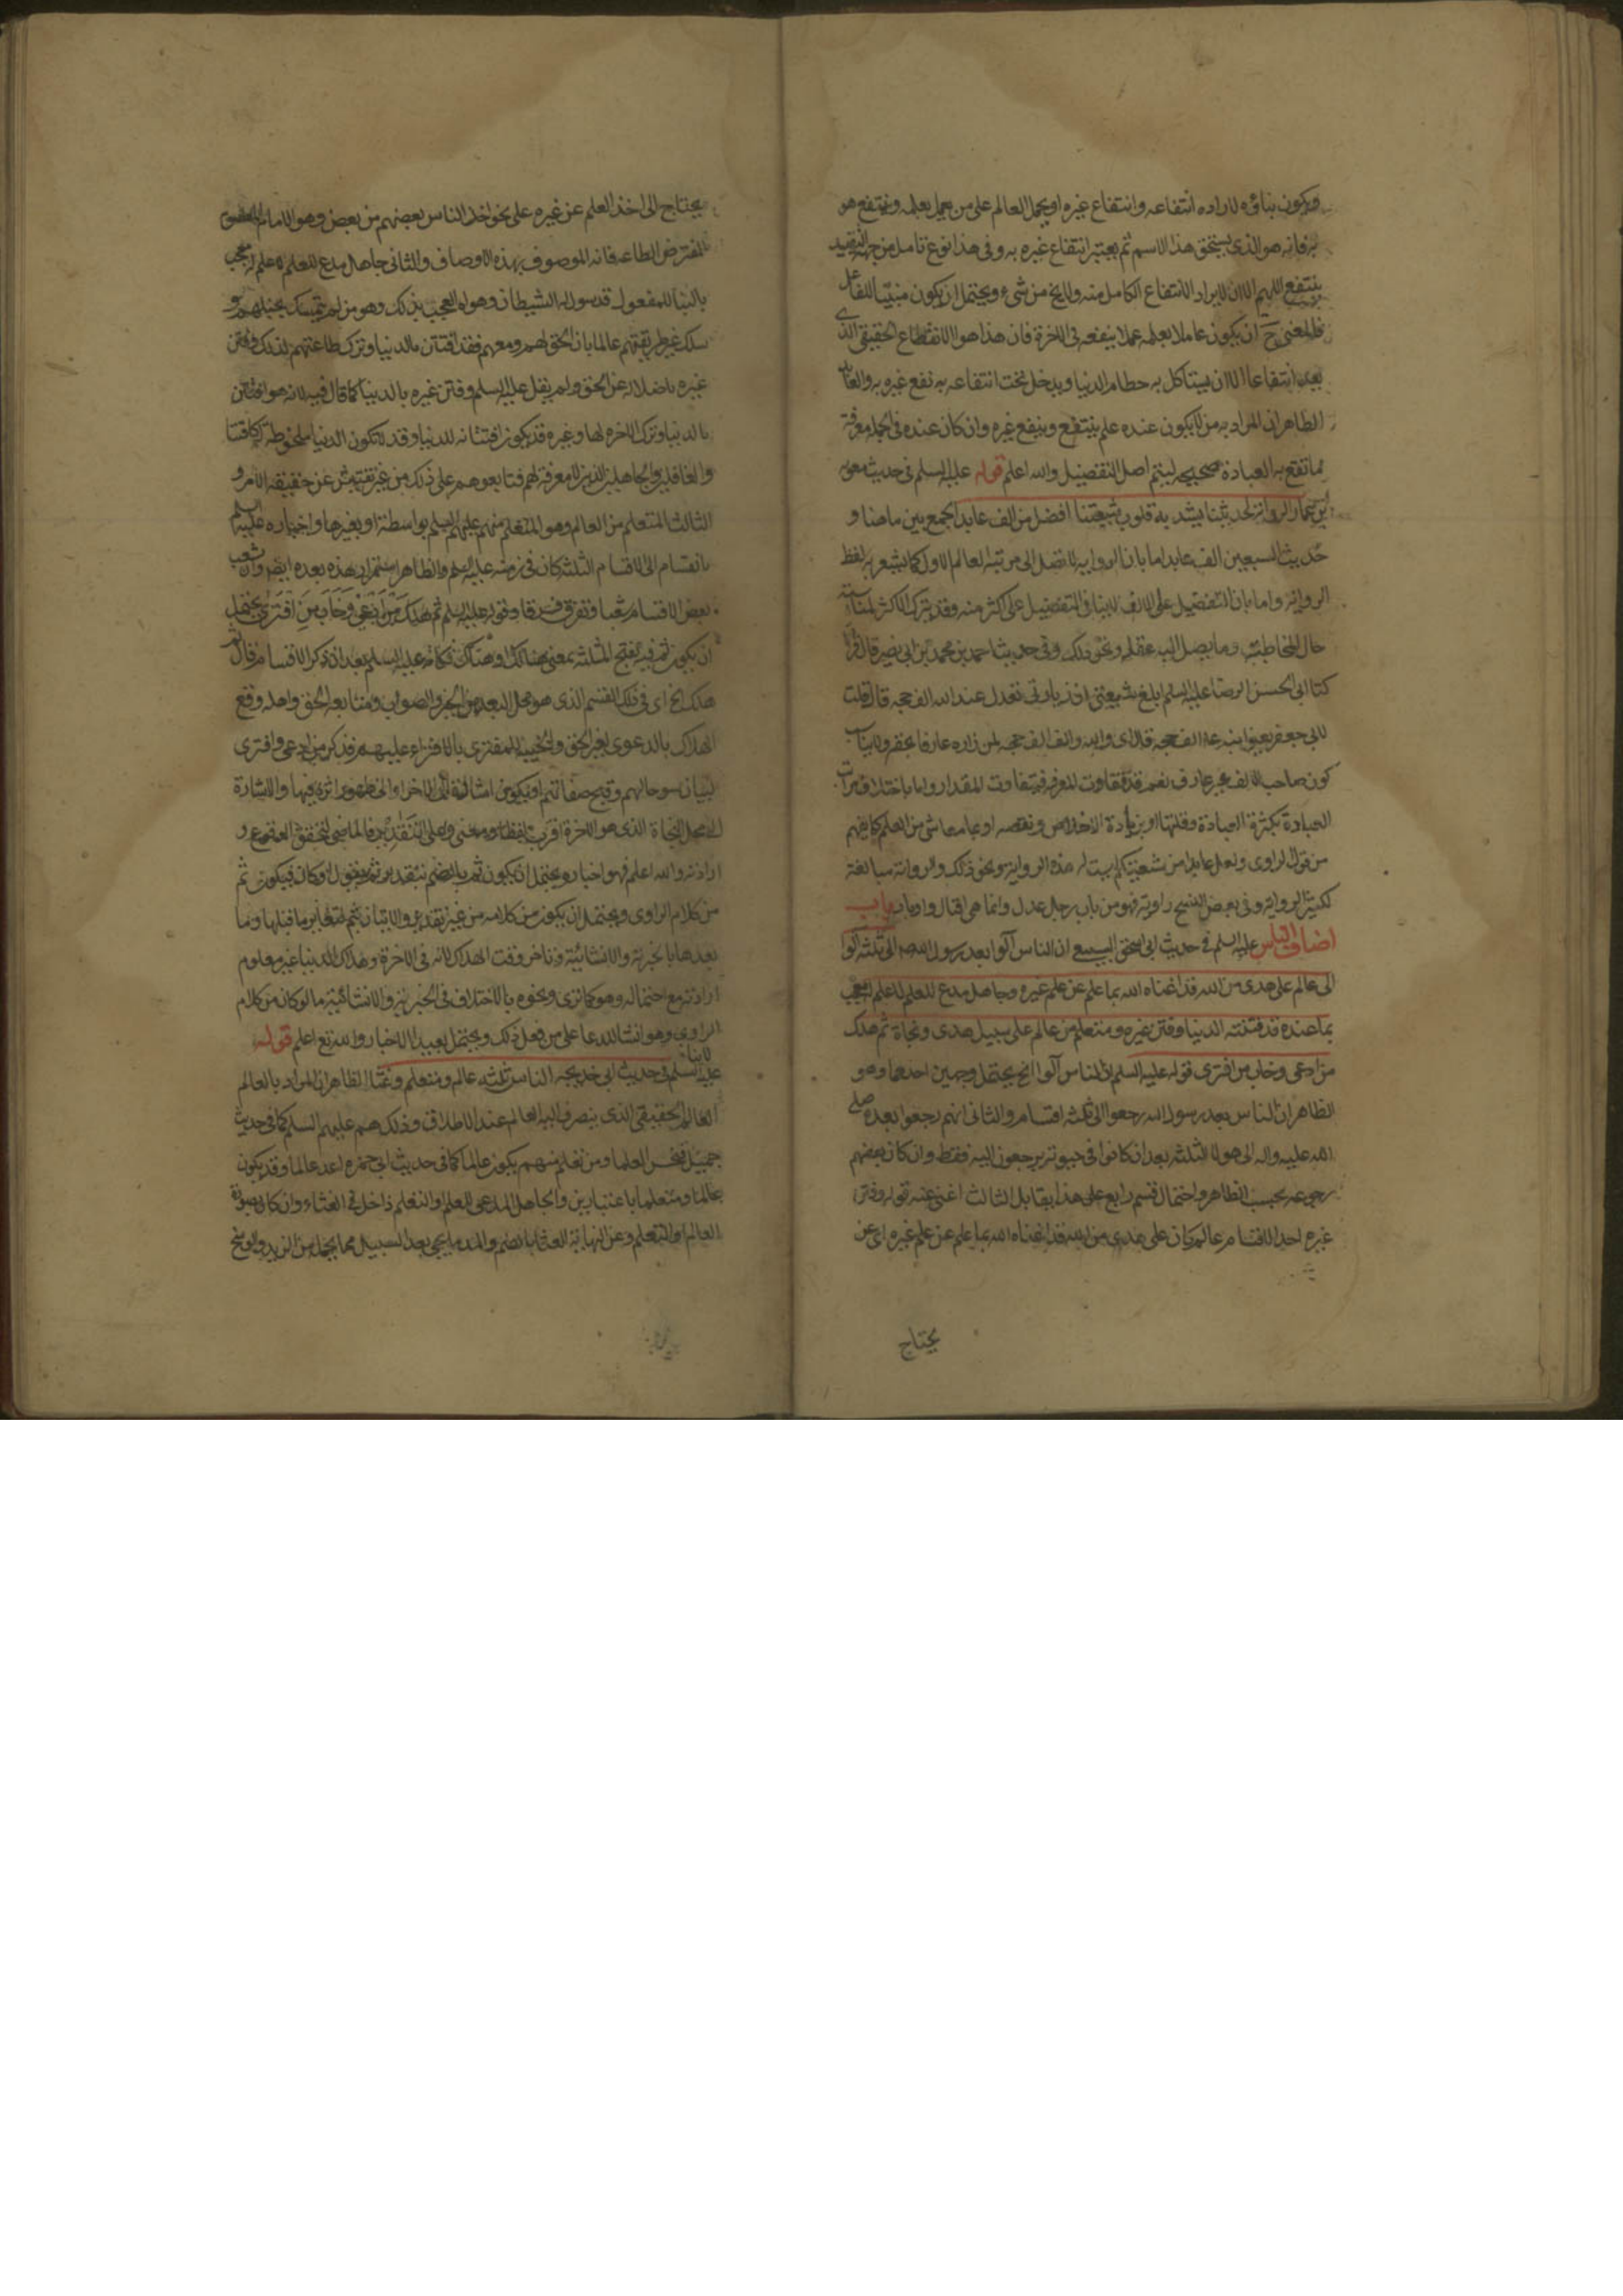 ويكون بناؤه لاراده انتفاعه وانتفاع غيره او يحمل العالم على من يعمل بعلمه وينتفع هو
به فانه هو الذي يستحق هذا الاسم ثم يعتبر انتفاع غيره به وفي هذا نوع تامل من جهة التقييد
بينتفع اللهم الا ان يراد الانتفاع الكامل منه ولا يخ من شيء ويحتمل ان يكون مبنيا للفاعل
فالمعنى ح ان يكون عاملا بعلمه عملا ينفعه في الاخرة فان هذا هو الانتفاع الحقيقي الذي
يعد انتفاعا لا ان يستاكل به حطام الدنيا ويدخل تحت انتفاعه به نفع غيره به والعابد
الظاهر ان المراد به من لا يكون عنده علم ينتفع وينفع غيره وان كان عنده في الجملة معرفة
بما تقع به العبادة صحيحة ليتم اصل التفضيل والله اعلم قوله عليه السلم في حديث معوية
ابن عمار الرواية لحديثنا يشد به قلوب شيعتنا افضل من الف عابد الجمع بين ما هنا و
حديث السبعين الف عابد اما بان الرواية لا تصل الى مرتبة العالم الاول كما يشعر به لفظ
الرواية واما بان التفضيل على الالف لا ينافي التفضيل على اكثر منه وقد يترك الاكثر لمناسبة
حال المخاطب وما يصل اليه عقله ونحو ذلك وفي حديث احمد بن محمد بن ابي نصر قال قرأت
كتاب ابي الحسن الرضا عليه السلم ابلغ شيعتي ان زيارتي تعدل عند الله الف حجة قال قلت
لابي جعفر يعني ابنه عه الف حجة قال اي والله والف الف حجة لمن زاره عارفا بحقه ولا ينا
كون صاحب الالف غير عارف نعم قد تتفاوت المعرفة فيتفاوت المقدار واما باختلاف مراتب
العبادة بكثرة العبادة وقلتها او بزيادة الاخلاص ونقصه او بما معاش من العلم كما يفهم
من قول الراوي ولعل عابدا من شيعتكم ليست له هذه الرواية ونحو ذلك والرواية مبالغة
لكثير الرواية وفي بعض النسخ راوية فهو من باب رجل عدل وانما هي اقبال وادبار باب
اصناف الناس عليه السلم في حديث ابي اسحق السبيعي ان الناس آلوا بعد رسول الله صه الى ثلثة آلوا
الى عالم على هدى من الله قد اغناه الله بما علم عن علم غيره وجاهل مدع للعلم لا علم له معجب
بما عنده قد فتنته الدنيا وفتن غيره ومتعلم من عالم على سبيل هدى ونجاة ثم هلك
من ادعى وخاب من افترى قوله عليه السلم ان الناس آلوا الخ يحتمل وجهين احدهما وهو
الظاهر ان الناس بعد رسول الله رجعوا الى ثلثة اقسام والثاني انهم رجعوا بعده صلى
الله عليه واله الى هولا الثلثة بعد ان كانوا في حيوته يرجعون اليه فقط وان كان بعضهم
رجوعه بحسب الظاهر واحتمال قسم رابع على هذا يقابل الثالث اغنى عنه قوله وفتن
غيره احد الاقسام عالم كان على هدى من الله قد اغناه الله بما علم عن علم غيره اي عن
يحتاج
يحتاج الى اخذ العلم عن غيره على نحو اخذ الناس بعضهم من بعض وهو الامام المعصوم
المفترض الطاعة فانه الموصوف بهذه الاوصاف والثاني جاهل مدع للعلم لا علم له معجب
بالبنا للمفعول قد سول له الشيطان وهواه العجب بذلك وهو من لم يتمسك بحبلهم و
سلك غير طريقتهم عالما بان الحق لهم ومعهم فقد افتتن بالدنيا وترك طاعتهم لذلك وفتن
غيره باضلاله عن الحق ولم يقل عليه السلم وفتن غيره بالدنيا كما قال فيه لانه هو افتتن
بالدنيا وترك الاخرة لها وغيره قد يكون افتتانه للدنيا وقد لا تكون الدنيا ملحوظة له
والغافلين والجاهلين الذين لا معرفة لهم فتابعوهم على ذلك من غير تفتيش عن حقيقة الامر و
الثالث المتعلم من العالم وهو المتعلم منهم عليهم السلم بواسطة او بغيرها واخباره عليه السلم
بانقسام الى الاقسام الثلثة كان في زمنه عليه السلم والظاهر استمرار هذه بعده ايضا وان تشعب
بعض الاقسام شعبا وتفرق فرقا وقوله عليه السلم ثم هلك من ادعى وخاب من افترى يحتمل
ان يكون ثم فيه بفتح المثلثة بمعنى هنالك او هناك فكانه عليه السلم بعد ان ذكر الاقسام قال ثم
هلك الخ اي في ذلك القسم الذي هو محل البعد من الخير والصواب ومتابعة الحق واهله وقع
الهلاك بالدعوى لغير الحق والخيبة للمفتري بالافتراء عليهم فذكر من ادعى وافترى
لبيان سوء حالهم وقبح صفاتهم او يكون اشارة الى الاخر او الى ظهور اثره فيها والاشارة
الى محل النجاة الذي هو الاخرة اقرب لفظا ومعنى وعلى التقدير فالماضي لتحقق الوقوع و
ارادته والله اعلم فهو اخبار ويحتمل ان يكون ثم بالضم بتقدير ثم يقول او كان فيكون ثم
من كلام الراوي ويحتمل ان يكون من كلامه من غير تقدير والاتيان بثم لتغاير ما قبلها وما
بعدها بالخبرية والانشائية وتاخر وقت الهلاك لانه في الاخرة وهلاك الدنيا غير معلوم
ارادته مع احتماله وهو كما ترى ونحوه بالاختلاف في الخبرية والانشائية ما لو كان من كلام
الراوي وهو انشا للدعا على من فعل ذلك ويحتمل بعيدا الاخبار والله تع اعلم قوله
عليه السلم في حديث ابي خديجة الناس ثلثة عالم ومتعلم وغثاء الظاهر ان المراد بالعالم
العالم الحقيقي الذي ينصرف اليه العالم عند الاطلاق وذلك هم عليهم السلم كما في حديث
جميل فنحن العلما ومن تعلم منهم يكون عالما كما في حديث ابي حمزه اغد عالما وقد يكون
عالما ومتعلما باعتبارين والجاهل المدعي للعلم والتعلم داخل في الغثاء وان كان بصورة
العالم او المتعلم وعن النهاية الغثا بالضم والمد ما يجيء بعد السيل مما يحمله من الزبد والوسخ